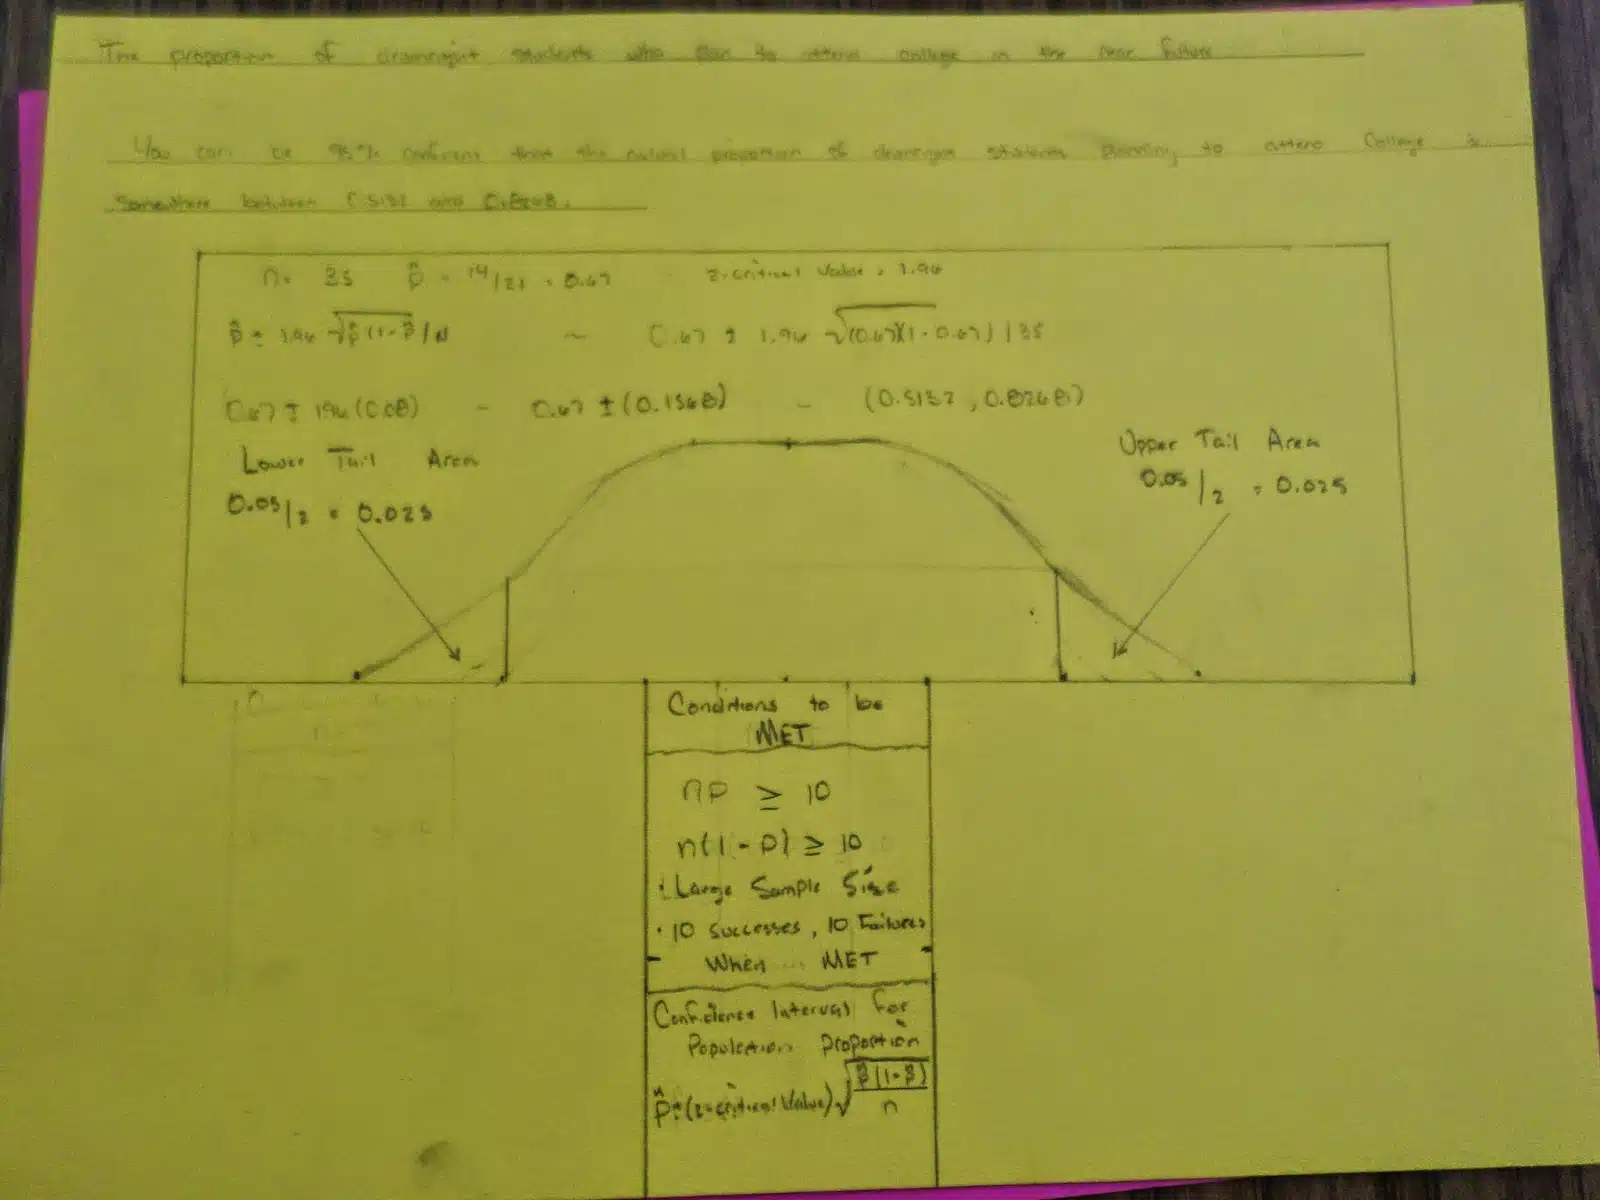 The proportion of students who plan to attend college in the near future
You can be 95% confident that the actual proportion of students planning to attend College is
Somewhere between 0.5132 and 0.8268.
n = 35 p̂ = 14/21 = 0.67 z-critical value = 1.96
p̂ ± 1.96 √p̂(1-p̂)/N ~ 0.67 ± 1.96 √(0.67)(1-0.67)/35
0.67 ± 1.96(0.08) - 0.67 ±(0.1568) - (0.5132, 0.8268)
Lower Tail Area
0.05/2 = 0.025
Upper Tail Area
0.05/2 = 0.025
Conditions to be
MET
np ≥ 10
n(1-p) ≥ 10
· Large Sample Size
· 10 successes, 10 Failures
When ... MET
Confidence Interval for
Population proportion
p̂±(z-critical Value)√p̂(1-p̂)/n